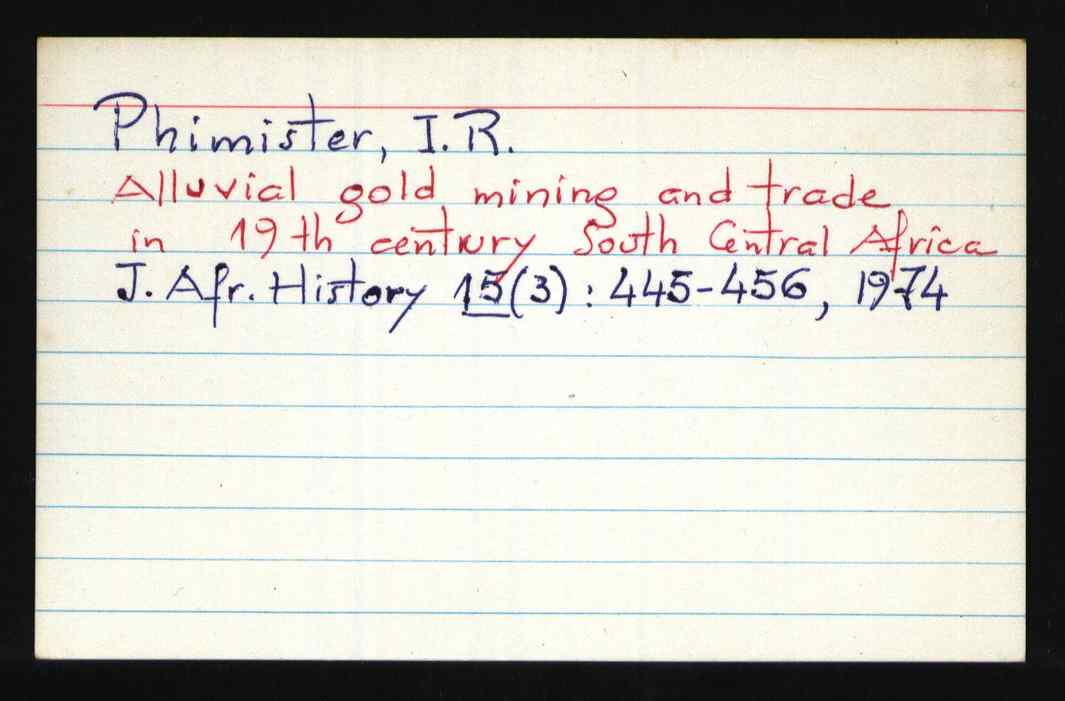 Phimister, I.R.
Alluvial gold mining and trade
in 19th century South Central Africa
J. Afr. History 15(3): 445-456, 1974